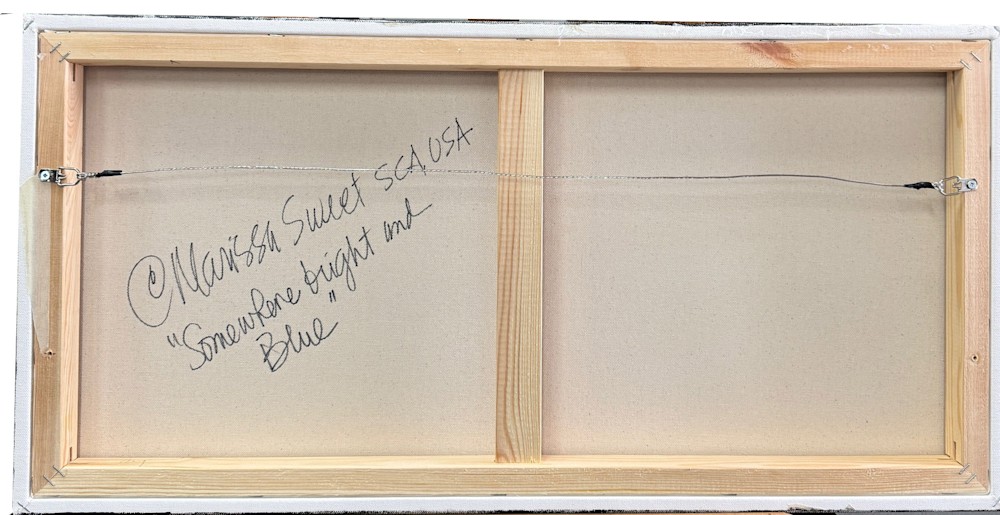 ©Marissa Sweet SCA, USA
"Somewhere bright and
Blue"